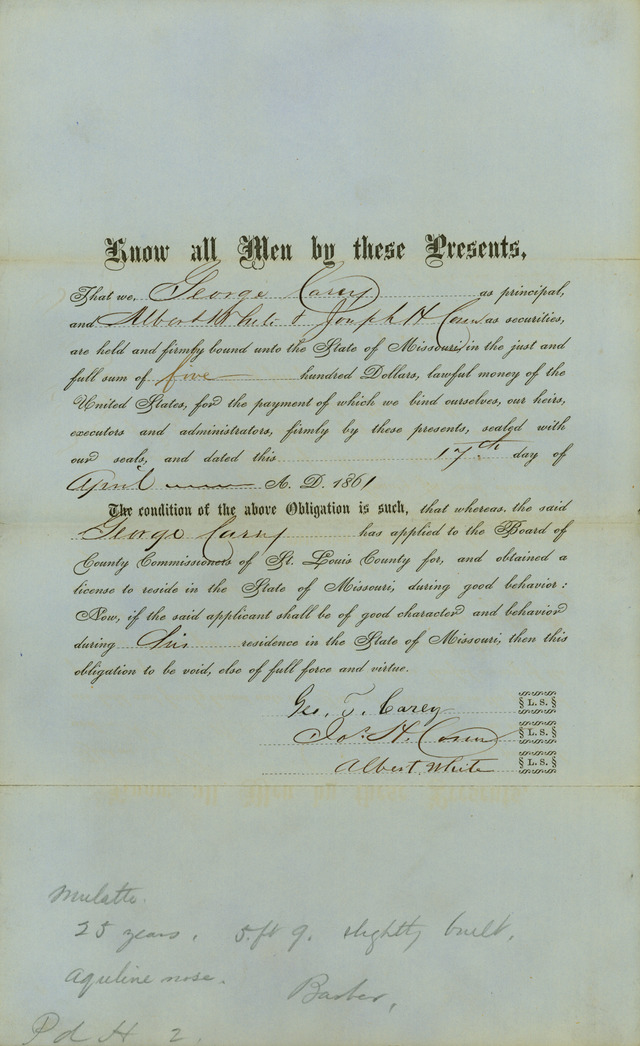 Know all Men by these Presents,
That we, George Carey as principal,
and Albert White & Joseph H as securities,
are held and firmly bound unto the State of Missouri, in the just and
full sum of five hundred Dollars, lawful money of the
United States, for the payment of which we bind ourselves, our heirs,
executors and administrators, firmly by these presents, sealed with
our seals, and dated this 17th day of
April A. D. 1861
The condition of the above Obligation is such, that whereas, the said
George Carey has applied to the Board of
County Commissioners of St. Louis County for, and obtained a
license to reside in the State of Missouri, during good behavior:
Now, if the said applicant shall be of good character and behavior
during his residence in the State of Missouri, then this
obligation to be void, else of full force and virtue.
Geo. T. Carey § L. S. §
Jos. H. § L. S. §
Albert White § L. S. §
Mulatto.
25 years. 5.ft 9. slightly built.
aquiline nose.
Barber,
Pd H 2.